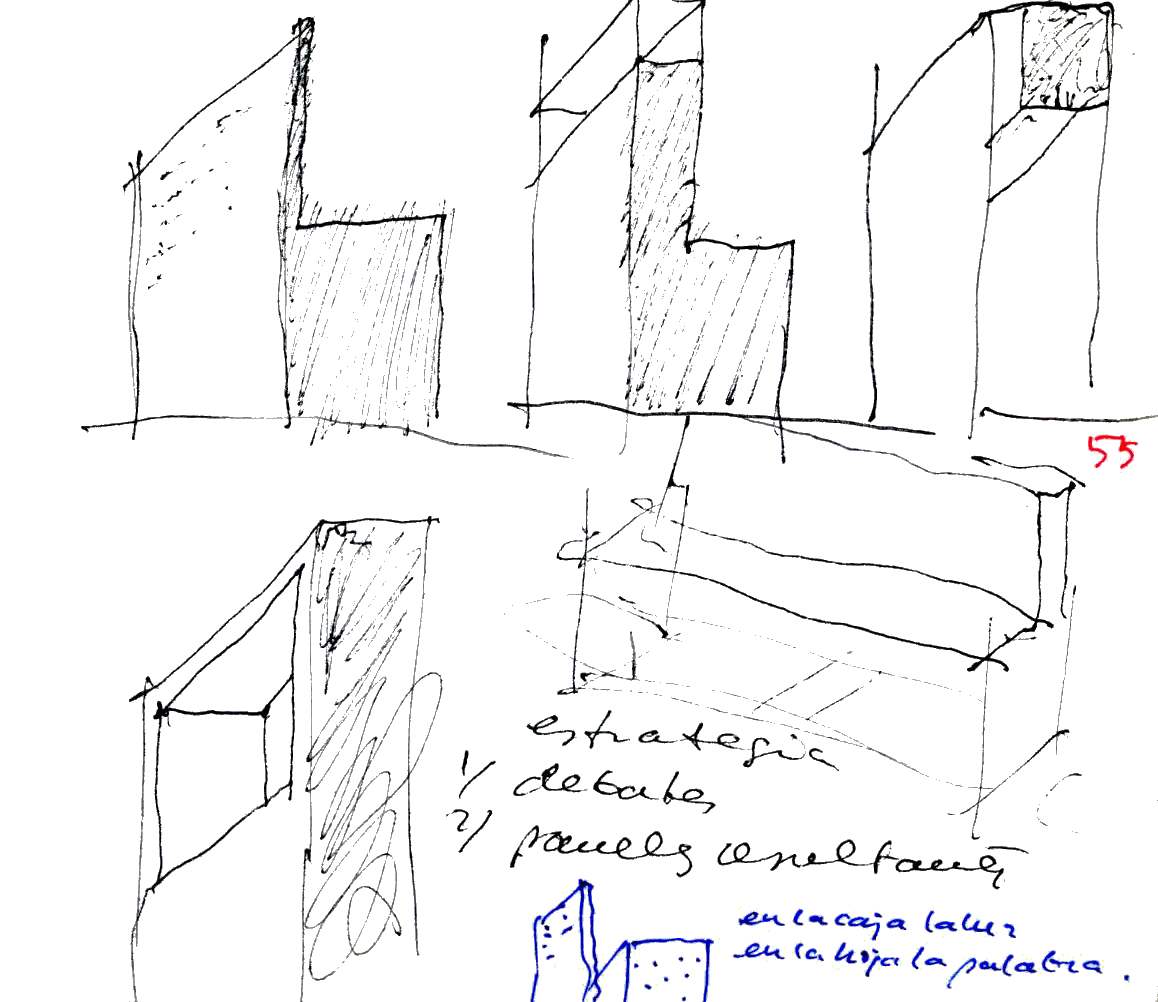 55
estrategia
1/ debates
2/ paneles
en la caja la luz
en la hoja la palabra.